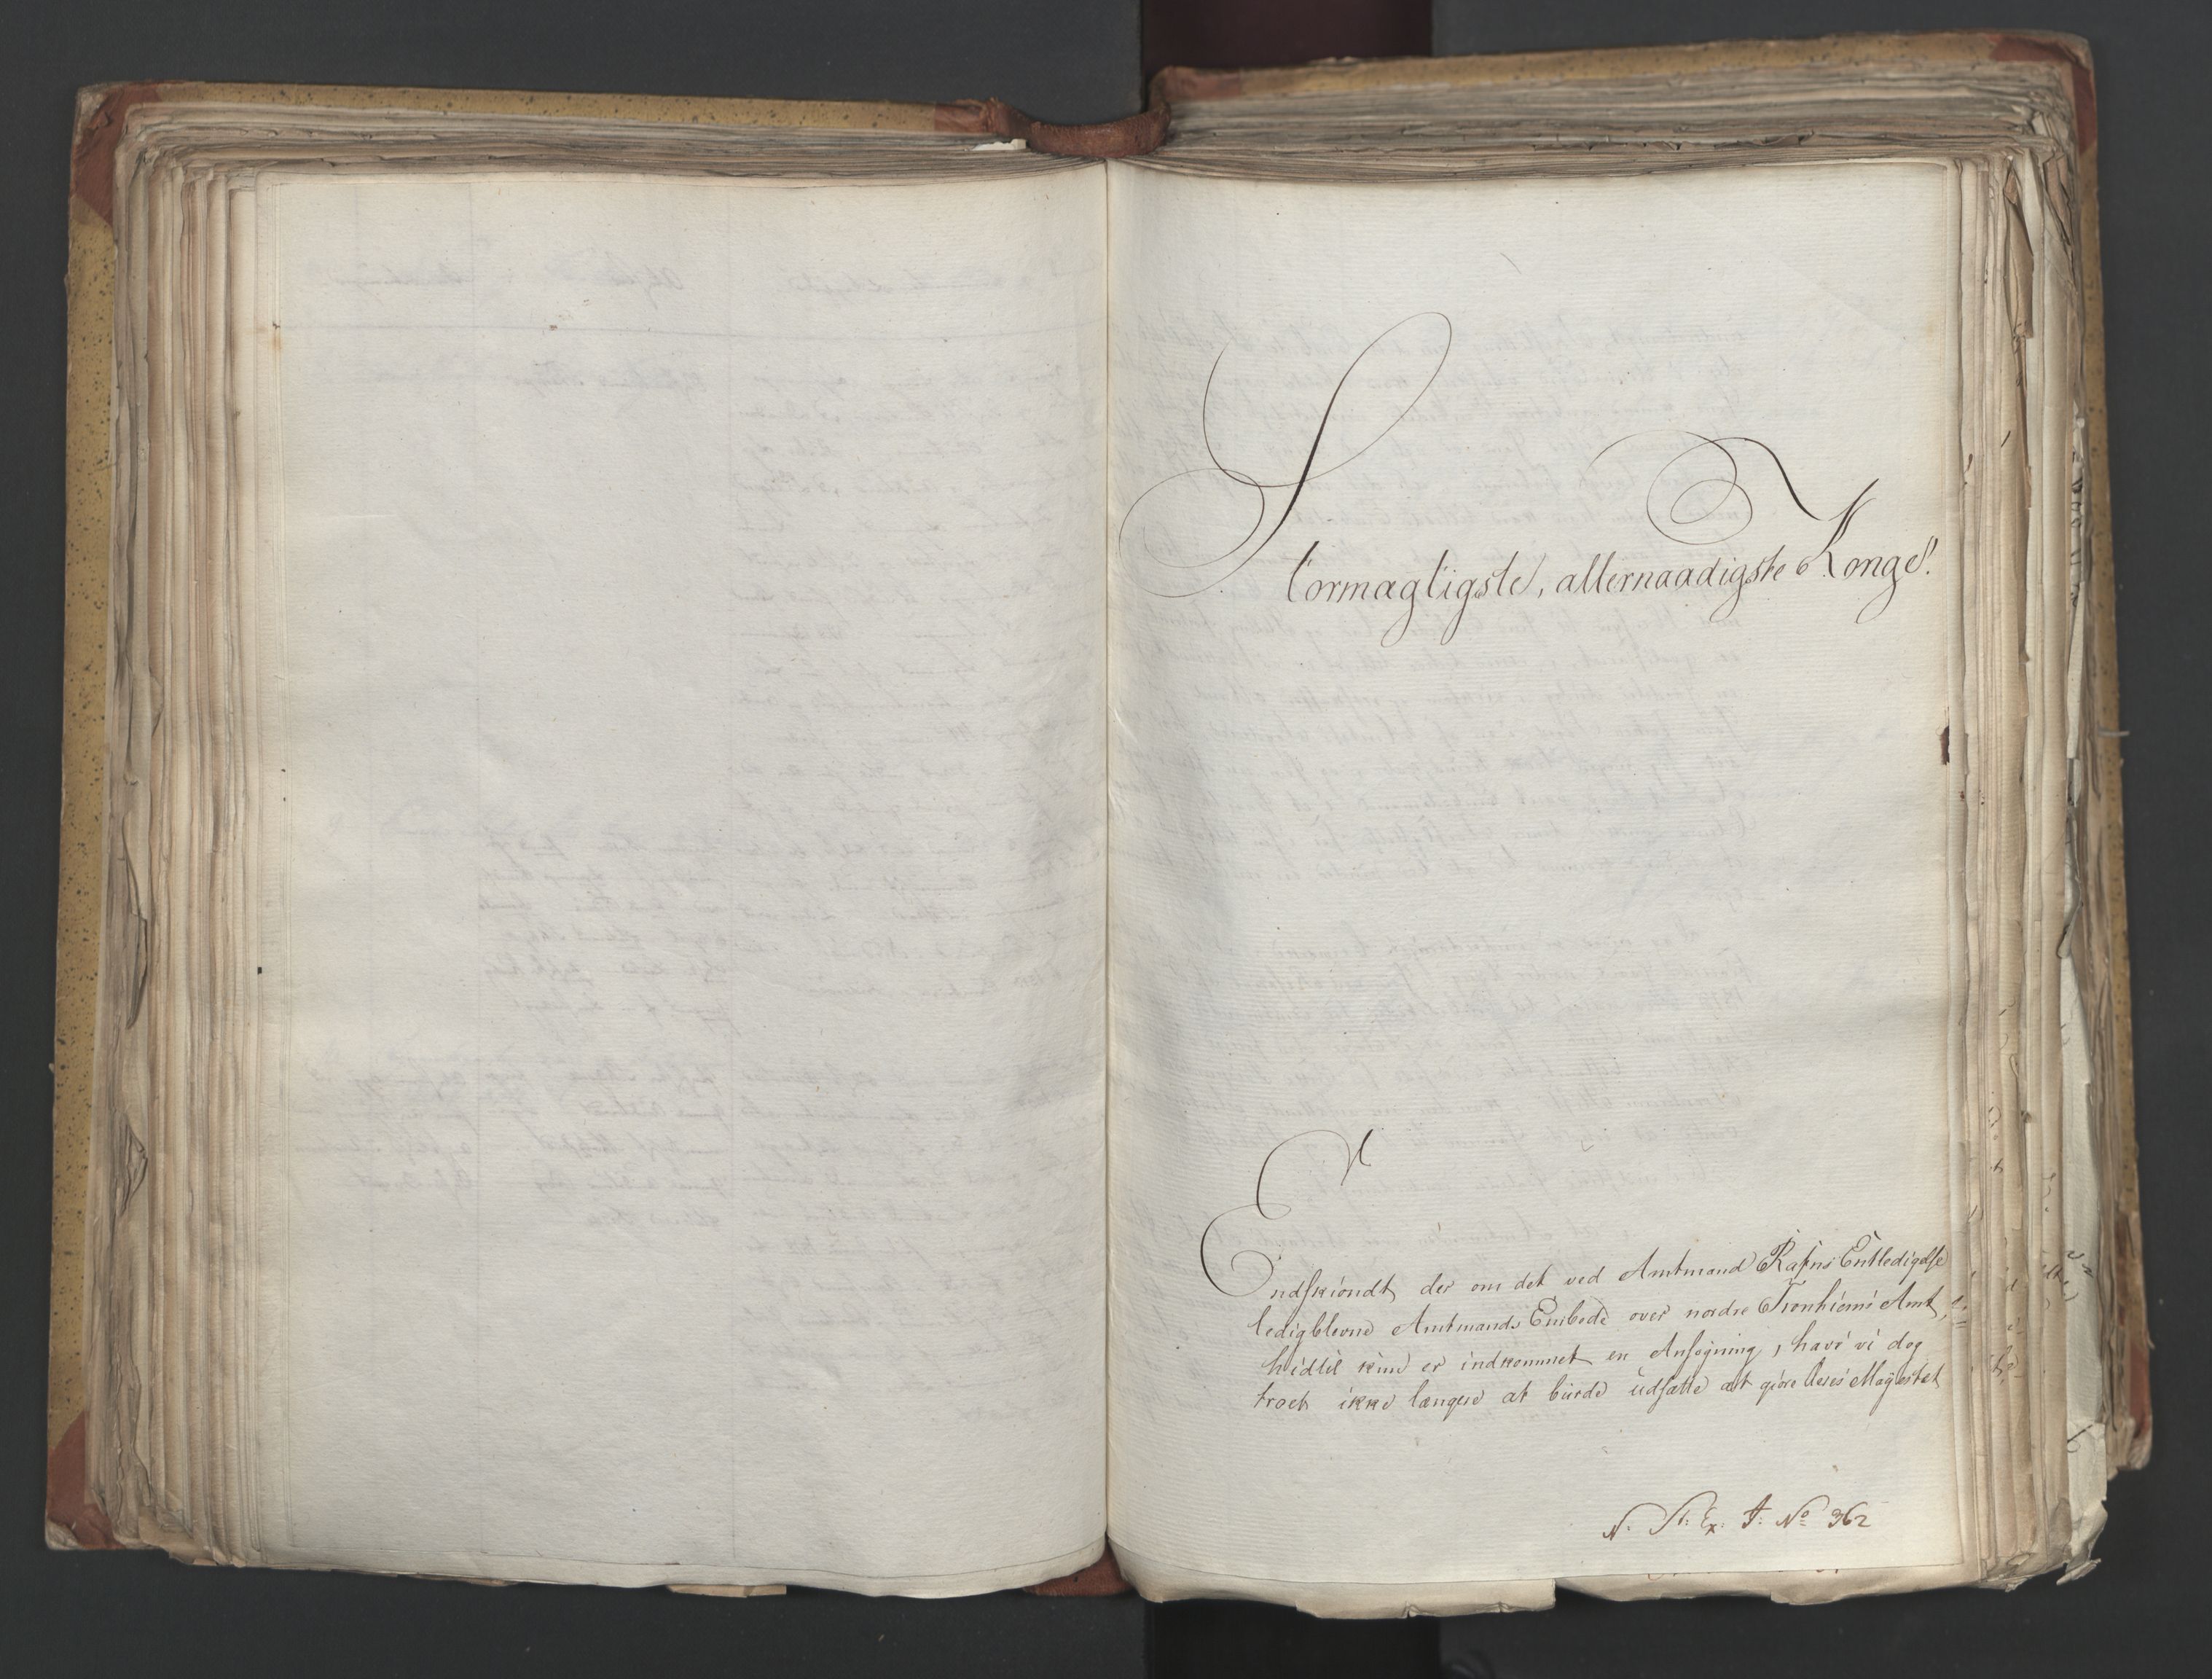 Stormægtigste, allernaadigste Konge!
Endskiöndt der om det ved Amtmand Rafns Entledigelse
ledigblevne Amtmands Embede over nordre Tronhiems Amt,
hidtil kun er indkommet en Ansøgning, have vi dog
troet ikke længere at burde udsætte at giøre Deres Majestæt
N. St: Ex. J: No 362